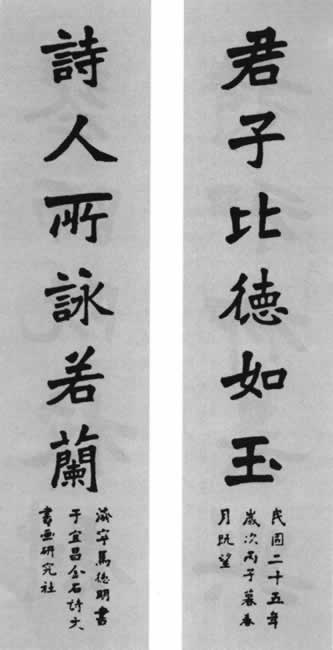 君子比德如玉
民國二十五年
歲次丙子暮春
月既望
詩人所詠若蘭
濟寧馬德明書
于宜昌金石詩文
書畫研究社